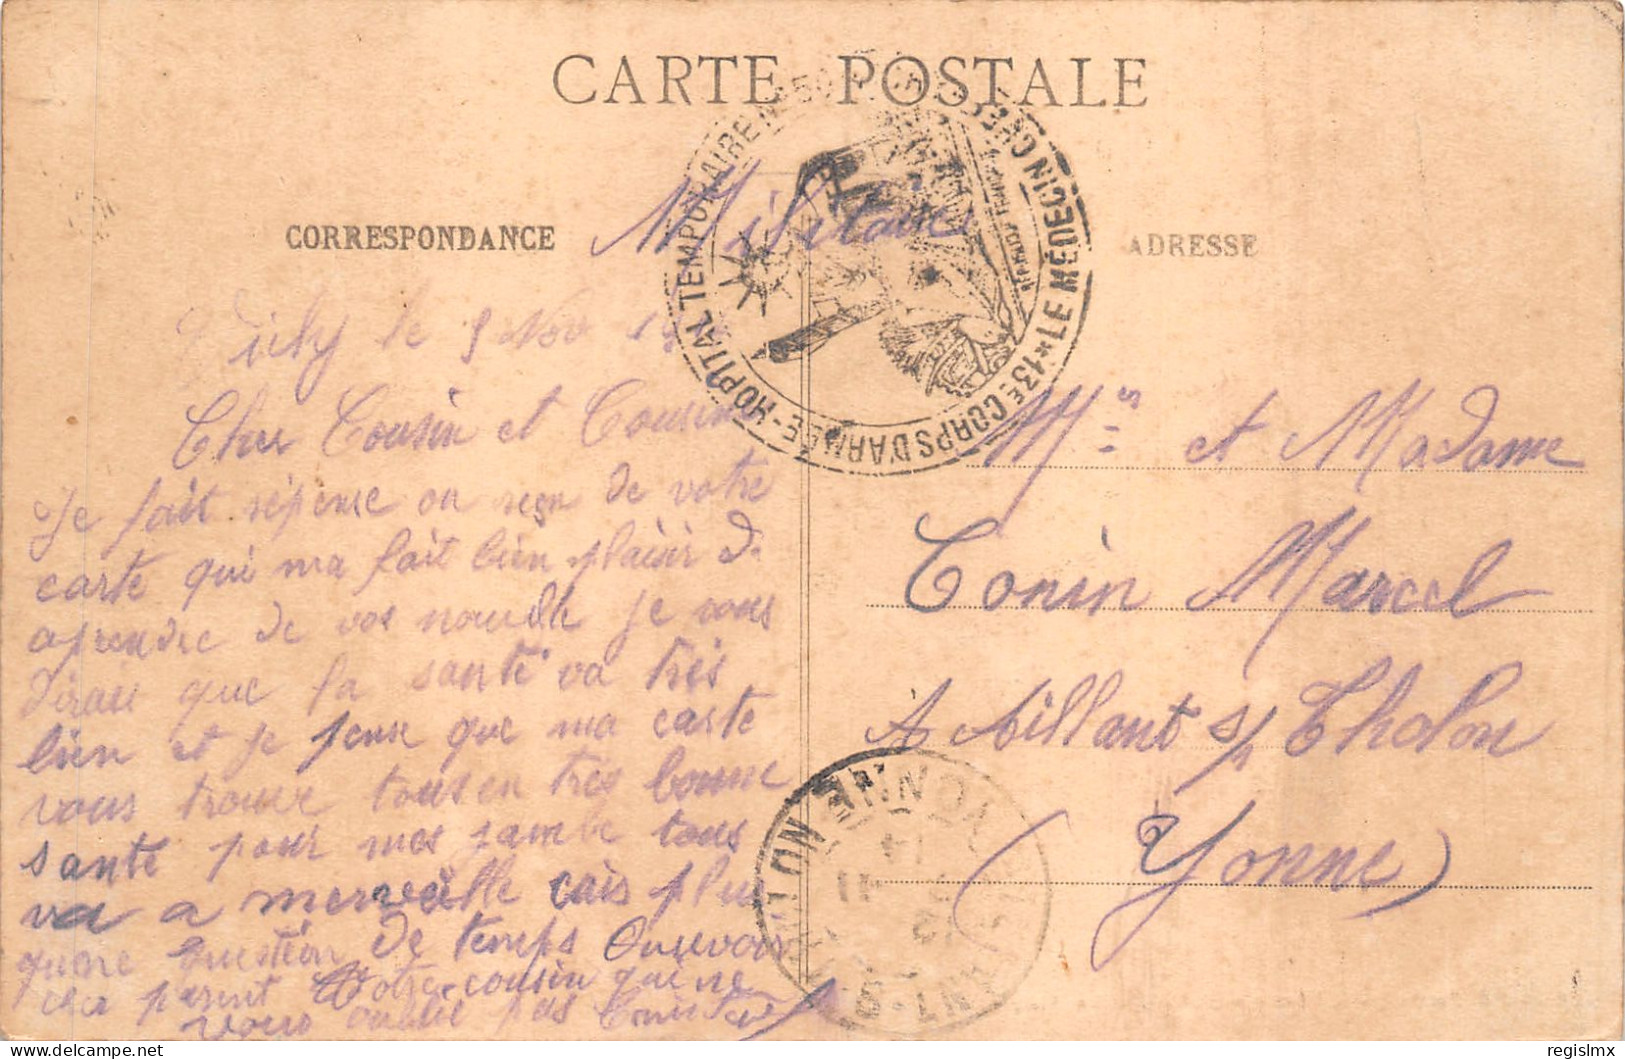 CARTE POSTALE
CORRESPONDANCE
Militaire
ADRESSE
13e CORPS D'ARMÉE - HOPITAL TEMPORAIRE N° 50 * LE MÉDECIN CHEF *
Vichy le 9 Nov 19
Cher Cousin et Cousine
Je fait réponse on reçu de votre
carte qui ma fait bien plaisir d
aprendre de vos nouvelle je vous
dirais que la santé va très
bien et je pense que ma carte
vous trouve tous en très bonne
santé pour mes jambe tous
va a merveille cais plus
quene question de temps Ourevoir
cher parent Votre cousin qui ne
vous oublie pas
Mrs et Madame
Tonin Marcel
A Aillant s/ Tholon
Yonne
YONNE
regislmx
delcampe.net